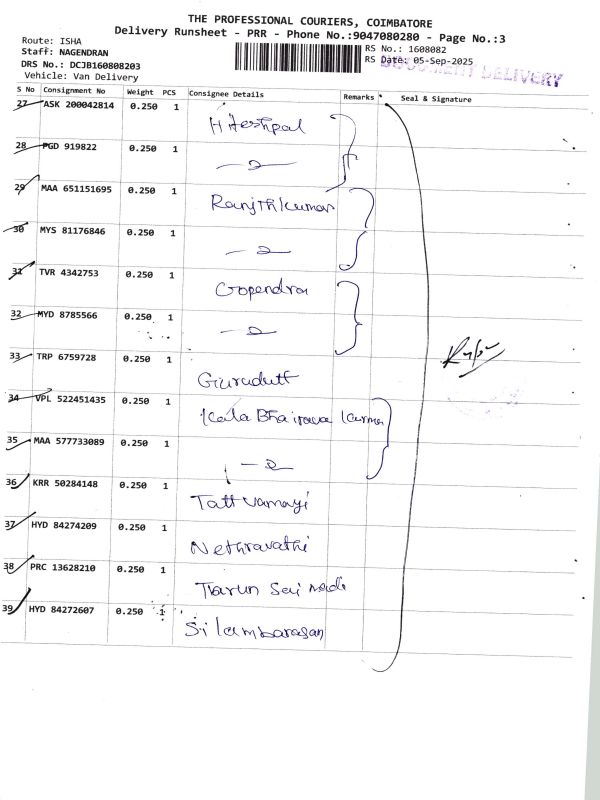 THE PROFESSIONAL COURIERS, COIMBATORE
Delivery Runsheet - PRR - Phone No.:9047080280 - Page No.:3
Route: ISHA
Staff: NAGENDRAN
DRS No.: DCJB160808203
Vehicle: Van Delivery
RS No.: 1608082
RS Date: 05-Sep-2025
DOCUMENT DELIVERY
S No Consignment No Weight PCS Consignee Details Remarks Seal & Signature
27 ASK 200042814 0.250 1 Hiteshpal
28 PGD 919822 0.250 1
29 MAA 651151695 0.250 1 Ranjithkumar
30 MYS 81176846 0.250 1
31 TVR 4342753 0.250 1 Gopendra
32 MYD 8785566 0.250 1
33 TRP 6759728 0.250 1 Gurudutt
34 VPL 522451435 0.250 1 Kala Bhairava Kumar
35 MAA 577733089 0.250 1
36 KRR 50284148 0.250 1 Tattvamayi
37 HYD 84274209 0.250 1 Nethravathi
38 PRC 13628210 0.250 1 Tarun Sai
39 HYD 84272607 0.250 1 Silambarasan